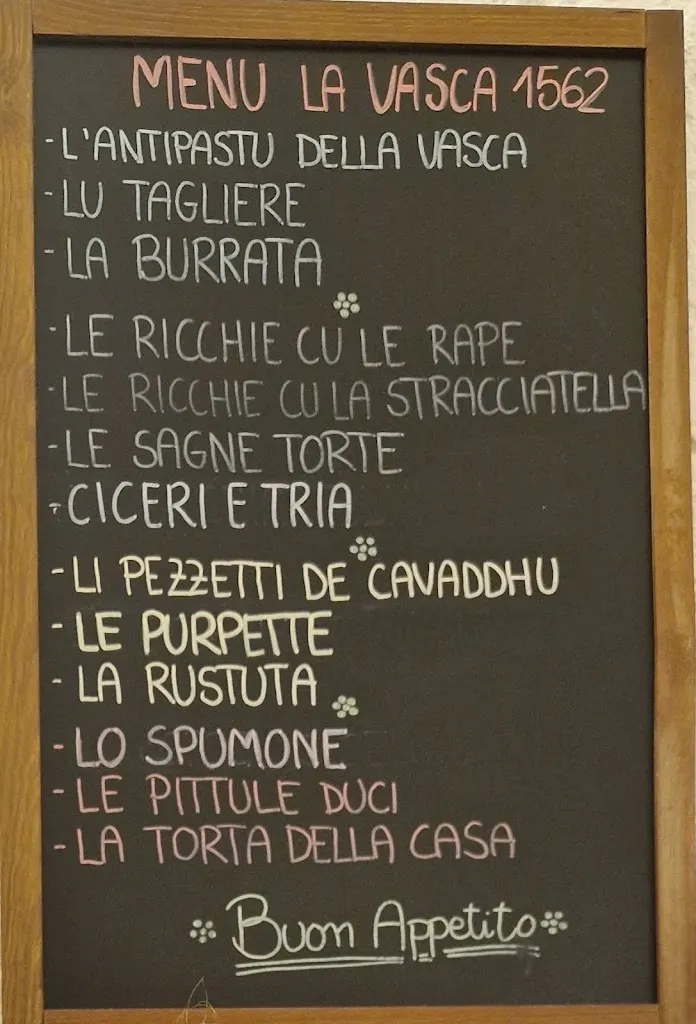 MENU LA VASCA 1562
- L'ANTIPASTU DELLA VASCA
- LU TAGLIERE
- LA BURRATA
- LE RICCHIE CU LE RAPE
- LE RICCHIE CU LA STRACCIATELLA
- LE SAGNE TORTE
- CICERI E TRIA
- LI PEZZETTI DE CAVADDHU
- LE PURPETTE
- LA RUSTUTA
- LO SPUMONE
- LE PITTULE DUCI
- LA TORTA DELLA CASA
Buon Appetito